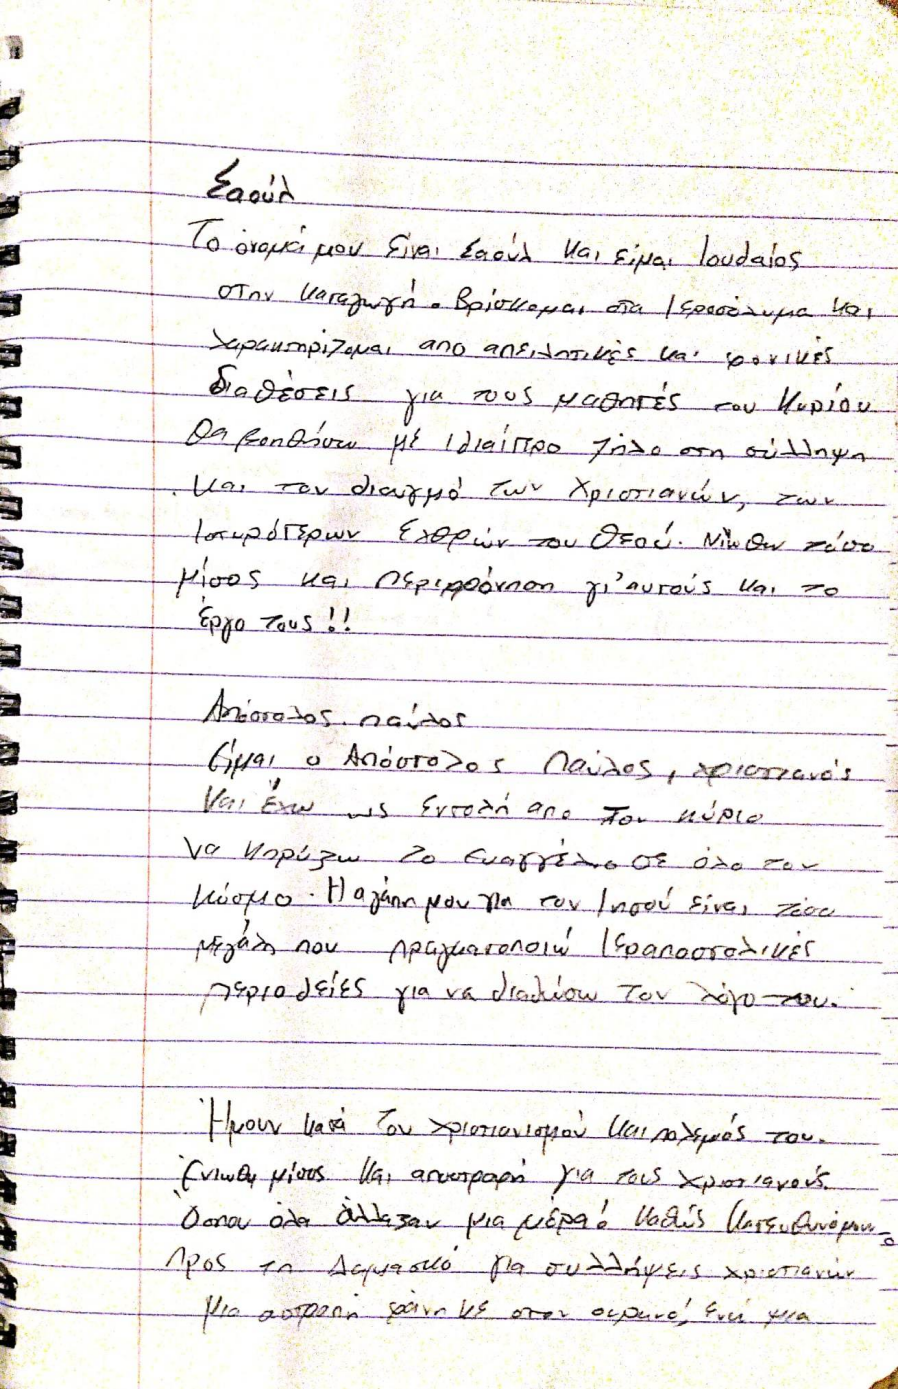 Σαούλ
Το όνομά μου είναι Σαούλ και είμαι Ιουδαίος
στην καταγωγή. Βρίσκομαι στα Ιεροσόλυμα και
χαρακτηρίζομαι απο απειλητικές και φονικές
διαθέσεις για τους μαθητές του Κυρίου
Θα βοηθήσω με ιδιαίτρο ζήλο στη σύλληψη
και τον διωγμό των Χριστιανών, των
Ισχυρότερων Εχθρών του Θεού. Νιώθω τόσο
μίσος και περιφρόνηση γι' αυτούς και το
έργο τους!!
Απόστολος Παύλος
Είμαι ο Απόστολος Παύλος, χριστιανός
και έχω ως εντολή απο τον κύριο
να κηρύξω το ευαγγέλιο σε όλο τον
κόσμο. Η αγάπη μου για τον Ιησού είναι τόσο
μεγάλη που πραγματοποιώ Ιεραποστολικές
περιοδείες για να διαδώσω τον λόγο του.
Ήμουν κατά του χριστιανισμού και πολεμιός του.
Ένιωθα μίσος και αποστροφή για τους χριστιανούς.
Όσπου όλα άλλαξαν μια μέρα καθώς κατευθυνόμουν
προς τη Δαμασκό για συλλήψεις χριστιανών
μια αστραπή φάνηκε στον ουρανό, ενώ μια